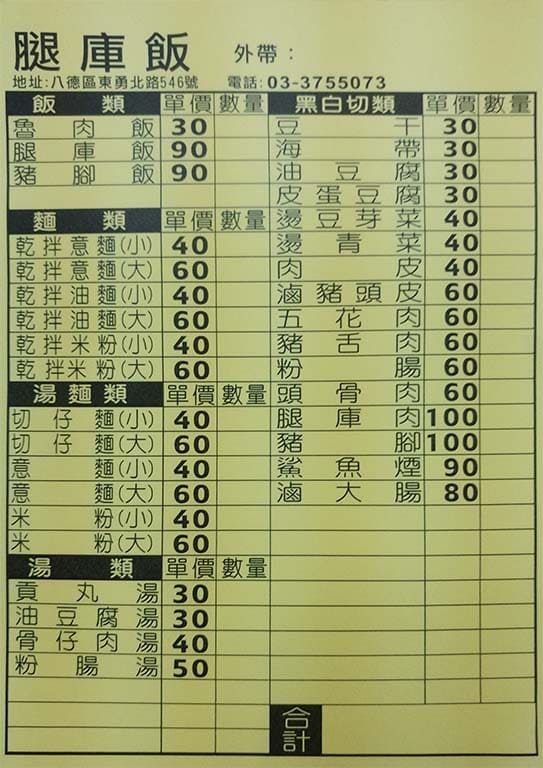 腿庫飯 外帶：
地址:八德區東勇北路546號 電話:03-3755073
飯類 單價 數量
魯肉飯 30
腿庫飯 90
豬腳飯 90
麵類 單價 數量
乾拌意麵(小) 40
乾拌意麵(大) 60
乾拌油麵(小) 40
乾拌油麵(大) 60
乾拌米粉(小) 40
乾拌米粉(大) 60
湯麵類 單價 數量
切仔麵(小) 40
切仔麵(大) 60
意麵(小) 40
意麵(大) 60
米粉(小) 40
米粉(大) 60
湯類 單價 數量
貢丸湯 30
油豆腐湯 30
骨仔肉湯 40
粉腸湯 50
黑白切類 單價 數量
豆干 30
海帶 30
油豆腐 30
皮蛋豆腐 30
燙豆芽菜 40
燙青菜 40
肉皮 40
滷豬頭皮 60
五花肉 60
豬舌肉 60
粉腸 60
頭骨肉 60
腿庫肉 100
豬腳 100
鯊魚煙 90
滷大腸 80
合計